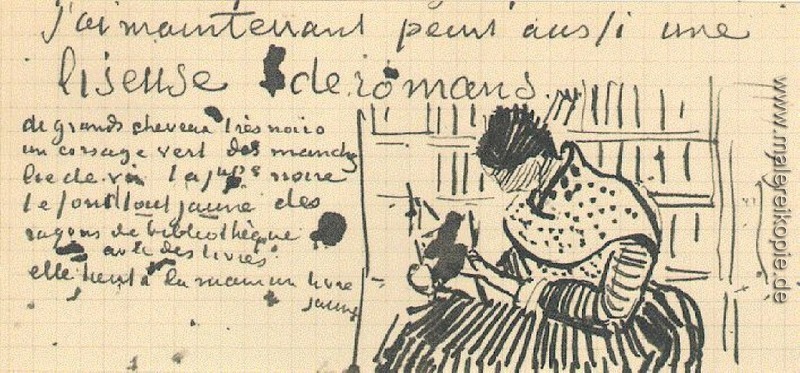 j'ai maintenant peint aussi une
liseuse de romans.
de grands cheveux très noirs
un corsage vert des manches
lie de vin la jupe noire
le fond tout jaune des
rayons de bibliothèque
avec des livres
elle tient à la main un livre
jaune
www.malereikopie.de